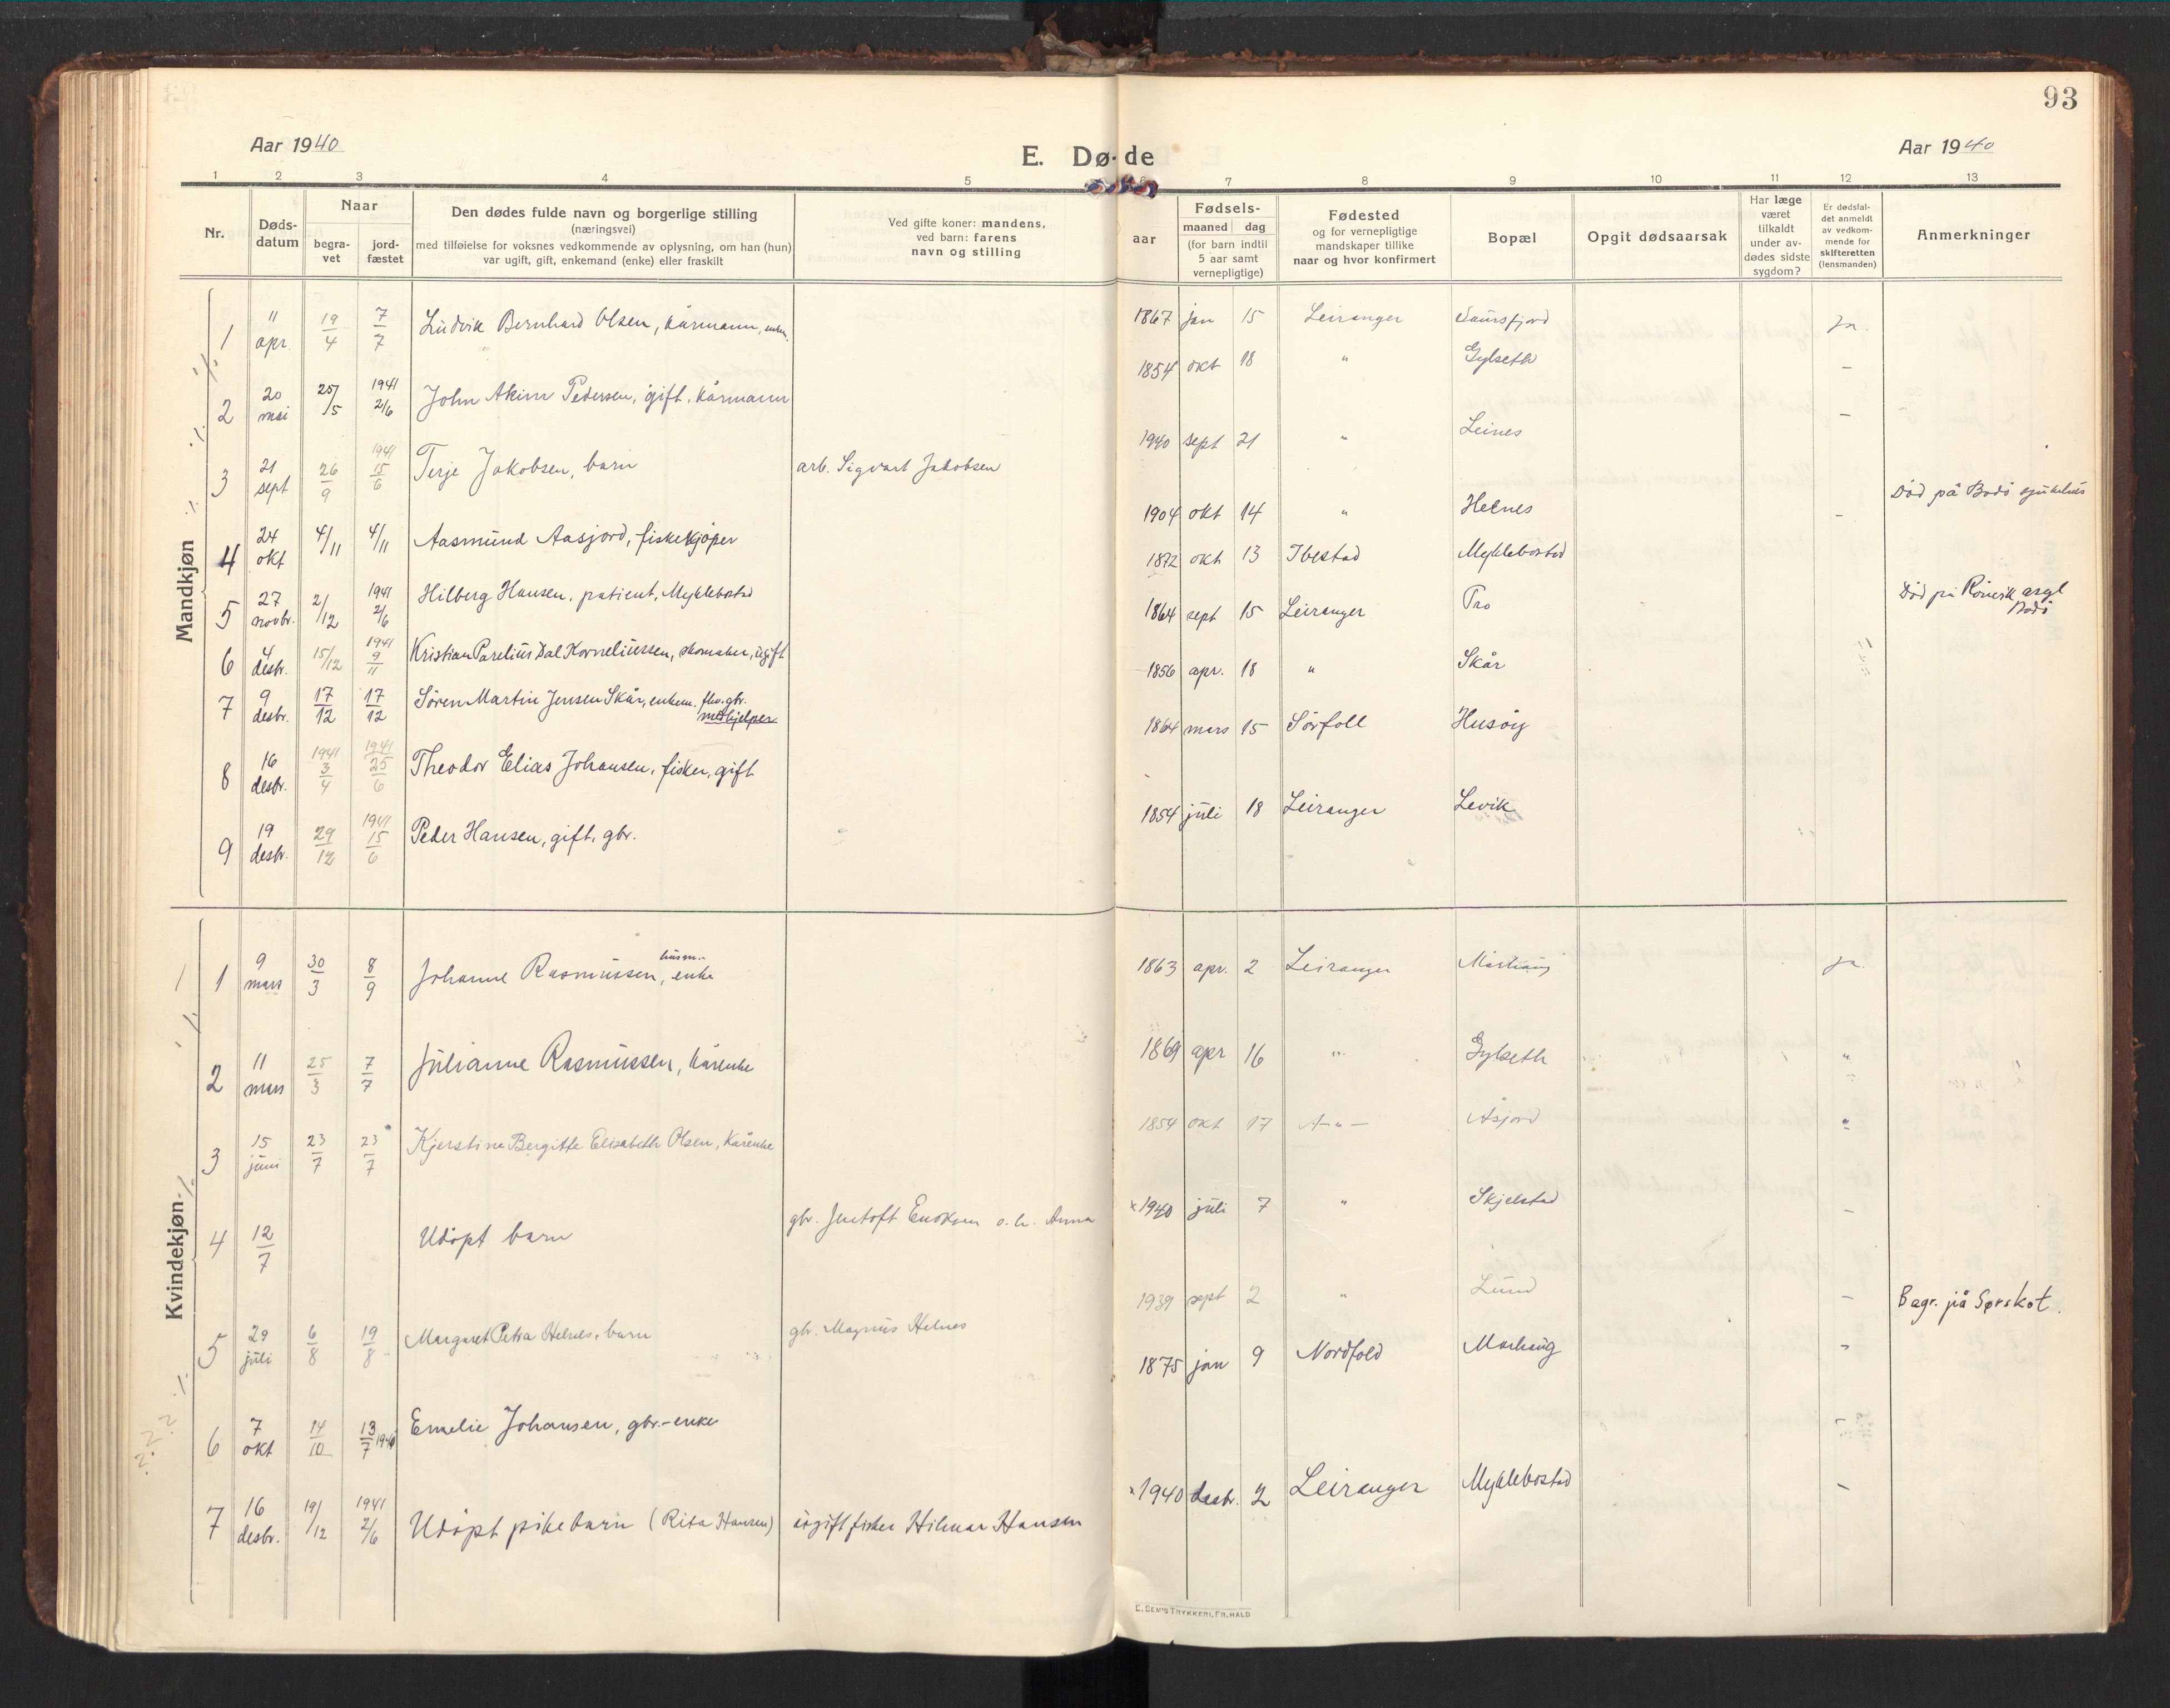 93
Aar 1940
E. Dø-de
Aar 1940
1 2 3 4 5 6 7 8 9 10 11 12 13
Nr.
Døds-
datum
Naar
begra-
vet
jord-
fæstet
Den dødes fulde navn og borgerlige stilling
(næringsvei)
med tilføielse for voksnes vedkommende av oplysning, om han (hun)
var ugift, gift, enkemand (enke) eller fraskilt
Ved gifte koner: mandens,
ved barn: farens
navn og stilling
aar
Fødsels-
maaned dag
(for barn indtil
5 aar samt
vernepligtige)
Fødested
og for vernepligtige
mandskaper tillike
naar og hvor konfirmert
Bopæl
Opgit dødsaarsak
Har læge
været
tilkaldt
under av-
dødes sidste
sygdom?
Er dødsfal-
det anmeldt
av vedkom-
mende for
skifteretten
(lensmanden)
Anmerkninger
Mandkjøn
1 11 apr. 19/4 7/7 Ludvik Bernhard Olsen, kårmann, enkem. 1867 jan 15 Leiranger Saursfjord ja.
2 20 mai 25/5 1941 2/6 John Akim Pedersen, gift, kårmann 1854 okt 18 " Gylseth -
3 21 sept 26/9 1941 15/6 Terje Jakobsen, barn arb. Sigvart Jakobsen 1940 sept 21 " Leines -
4 24 okt 4/11 4/11 Aasmund Aasjord, fiskekjøper 1904 okt 14 " Helnes - Död på Bodö sjukehus
5 27 novbr. 2/12 1941 2/6 Hilberg Hansen, patient, Myklebostad 1872 okt 13 Ibestad Myklebostad
6 4 desbr. 15/12 1941 9/11 Kristian Parelius Dal Korneliussen, skomaker, ugift 1864 sept 15 Leiranger Pro Död på Rönvik asyl
Bodö
7 9 desbr. 17/12 17/12 Sören Martin Jensen Skår, enkem. fhv. gbr.
medhjelper 1856 apr. 18 " Skår
8 16 desbr. 1941 3/4 1941 25/6 Theodor Elias Johansen, fisker, gift 1864 mars 15 Sörfoll Husöy
9 19 desbr. 29/12 1941 15/6 Peder Hansen, gift, gbr. 1854 juli 18 Leiranger Levik
Kvindekjøn
1 9 mars 30/3 8/9 Johanne Rasmussen, husm.- enke 1863 apr. 2 Leiranger ja.
2 11 mars 25/3 7/7 Julianne Rasmussen, kårenke 1869 apr 16 " Gylseth "
3 15 juni 23/7 23/7 Kjerstine Bergitte Elisabeth Olsen, kårenke 1854 okt 17 -"- Åsjord "
4 12/7 Udöpt barn gbr. Jentoft Enoksen o. h. Anna × 1940 juli 7 " Skjelstad -
5 29 juli 6/8 19/8 Margaret Petra Helnes, barn gbr. Magnus Helnes 1939 sept 2 " Lund - Begr. på Sørskot.
6 7 okt 14/10 13/7 1940 Emelie Johansen, gbr.-enke 1875 jan 9 Nordfold Morhaug -
7 16 desbr. 19/12 1941 2/6 Udöpt pikebarn (Rita Hansen) ugift fisker Hilmar Hansen × 1940 desbr. 2 Leiranger Myklebostad -
E. SEM'S TRYKKERI, FR. HALD